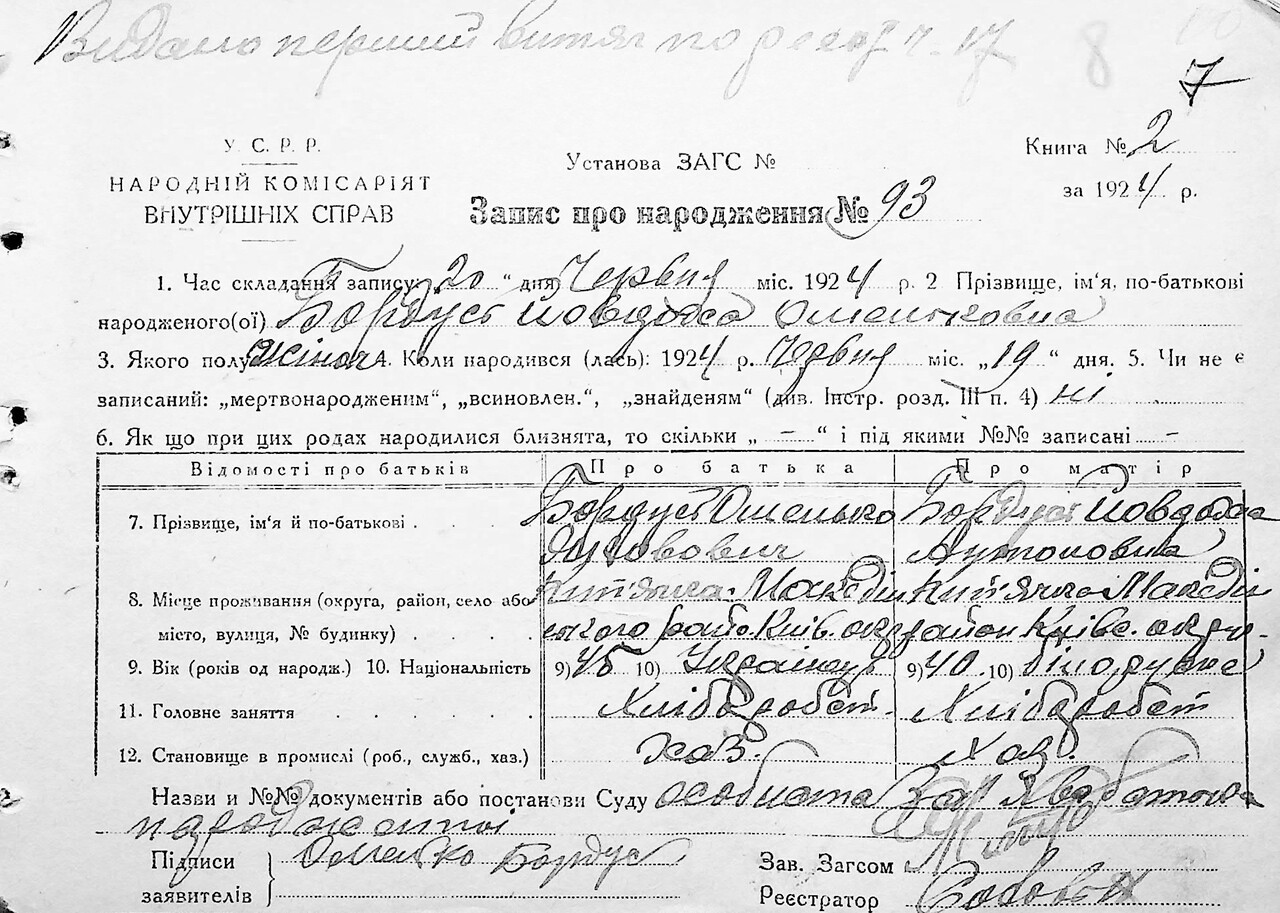 Видано перший витяг по реєст. ч. 17
8
7
У. С. Р. Р.
НАРОДНІЙ КОМІСАРІЯТ
ВНУТРІШНІХ СПРАВ
Установа ЗАГС №
Запис про народження № 93
Книга № 2
за 1924 р.
1. Час складання запису: „20“ дня Червня міс. 1924 р. 2 Прізвище, ім'я, по-батькові
народженого(ої) Бордус Йовдоха Омельковна
3. Якого полу жіноч 4. Коли народився (лась): 1924 р. Червня міс. „19“ дня. 5. Чи не є
записаний: „мертвонародженим“, „всиновлен.“, „знайденям“ (див. Інстр. розд. III п. 4) ні
6. Як що при цих родах народилися близнята, то скільки „ – “ і під якими №№ записані –
Відомості про батьків Про батька Про матір
7. Прізвище, ім'я й по-батькові Бордус Омелько Бордус Йовдоха
Антоновна
8. Місце проживання (округа, район, село або
місто, вулиця, № будинку) ського райо. Київ. окр район Київс. округ
9. Вік (років од народж.) 10. Національність 9) 45 10) Українець 9) 40 10) білоруска
11. Головне заняття Хлібороб Хлібороб
12. Становище в промислі (роб., служб., хаз.) хаз. хаз.
Назви и №№ документів або постанови Суду особиста батька
народженої
Підписи Омелько Бордус Зав. Загсом
заявителів Реєстратор